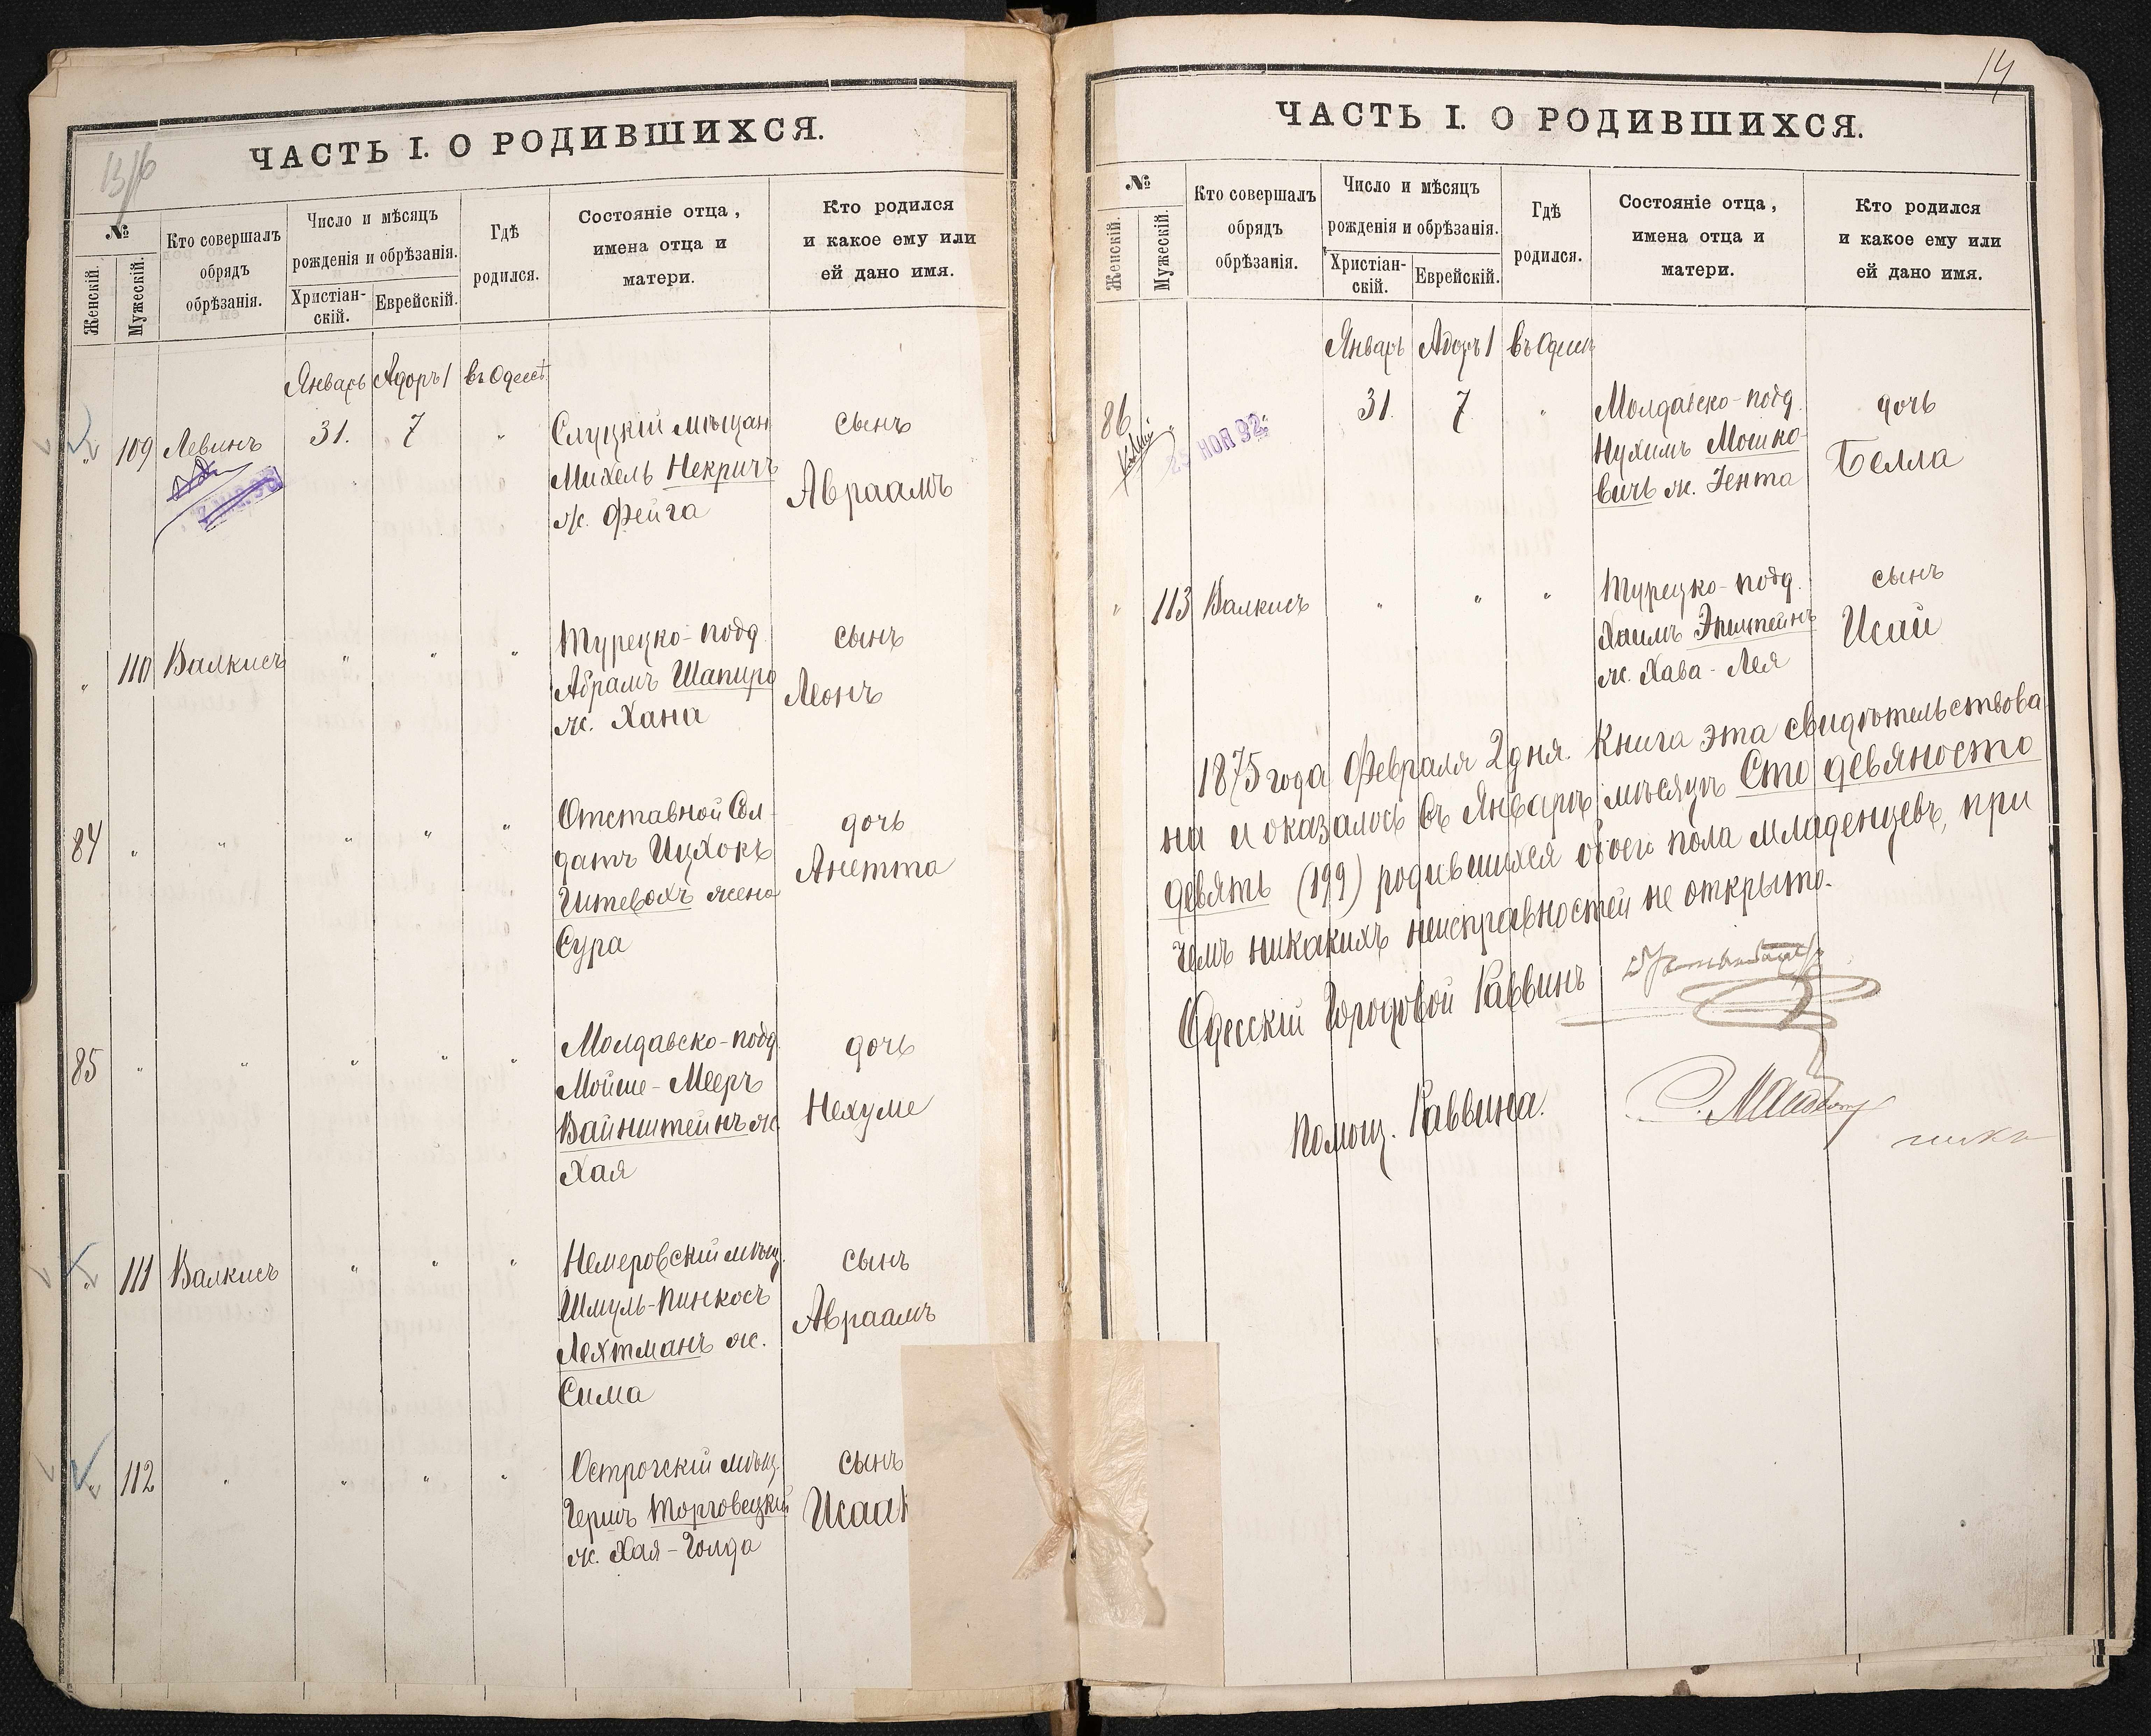 13/16
ЧАСТЬ I. О РОДИВШИХСЯ.
№
Женскій.
Мужескій.
Кто совершалъ
обрядъ
обрѣзанія.
Число и мѣсяцъ
рожденія и обрѣзанія.
Христіан-
скій.
Еврейскій.
Гдѣ
родился.
Состояніе отца,
имена отца и
матери.
Кто родился
и какое ему или
ей дано имя.
Январь Адоръ 1 въ Одессѣ
" 109 Левинъ 31. 7 " Слуцкій мѣщан сынъ
Михель Некричъ Авраамъ
ж. Фейга
" 110 Валкисъ " " " Турецко-подд. сынъ
Абрамъ Шапиро Леонъ
ж. Хана
84 " " " " " Отставной Сол- дочь
датъ Ицхокъ Анетта
Гитевахъ жена
Сура
85 " " " " Молдавско-подд. дочь
Мойше-Мееръ Нехуме
Вайнштейнъ ж
Хая
" 111 Валкисъ " " " Немеровскій мѣщ. сынъ
Шмуль-Пинкосъ Авраамъ
Лехтманъ ж.
Сима
" 112 " " " " Острогскій мѣщ. сынъ
Гершъ Торговецкій Исаак
ж. Хая-Голда
14
ЧАСТЬ I. О РОДИВШИХСЯ.
№
Женскій.
Мужескій.
Кто совершалъ
обрядъ
обрѣзанія.
Число и мѣсяцъ
рожденія и обрѣзанія.
Христіан-
скій.
Еврейскій.
Гдѣ
родился.
Состояніе отца,
имена отца и
матери.
Кто родился
и какое ему или
ей дано имя.
Январь Адоръ 1 въ Одессѣ
86 " 31. 7 " Молдавско-подд. дочь
25 НОЯ 92
Нухимъ Мошко- Белла
вичъ ж. Гента
" 113 Валкисъ " " " Турецко-подд. сынъ
Хаимъ Эпштейнъ Исай
ж. Хава-Лея
1875 года Февраля 2 дня. Книга эта свидѣтельствова
на и оказалось въ Январѣ мѣсяцѣ Сто девяносто
девять (199) родившихся обоего пола младенцевъ, при
чемъ никакихъ неисправностей не открыто.
Одесскій Городовой Раввинъ
Помощ. Раввина.